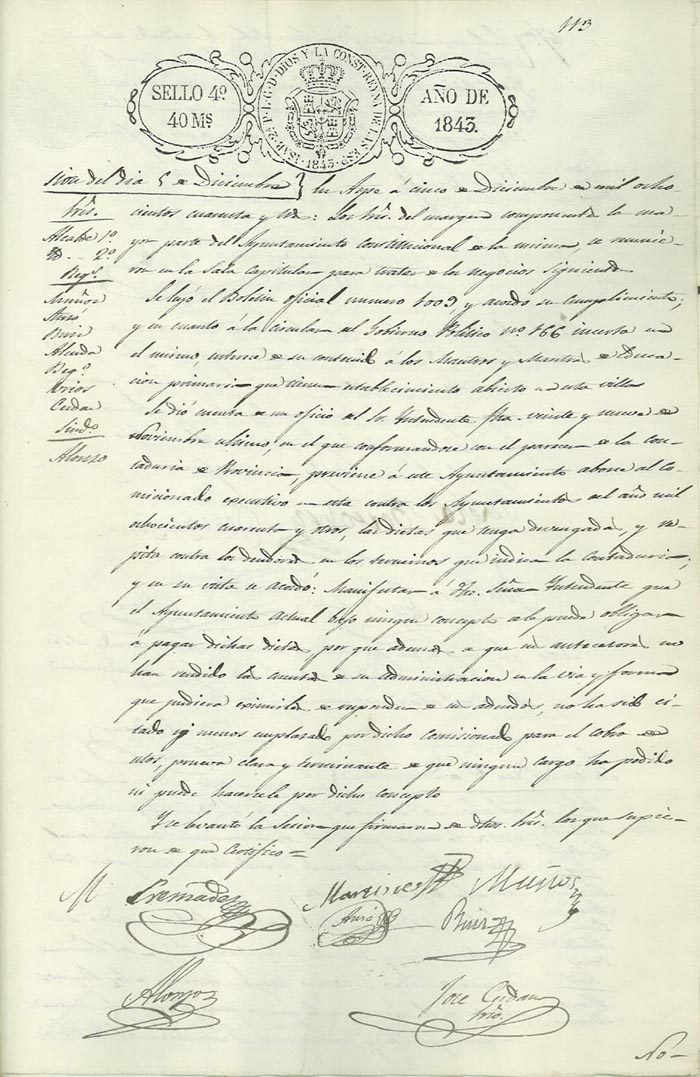 113
SELLO 4º
40 Ms
ISAB. 2ª P. L. G. D. DIOS Y LA CONST. REYNA DE LAS ESP. 1843.
AÑO DE
1843.
del dia 5 de Diciembre
Sres.
Alcalde 1º
Yd. - 2º
Regs.
Muñoz
Ruiz
Síndo.
Alonzo
En Aspe á cinco de Diciembre de mil ocho
cientos cuarenta y tres: Los Sres. del margen componente la ma-
yor parte del Ayuntamiento constitucional de la misma, se reunie-
ron en la Sala capitular para tratar de los negocios siguientes
Se leyó el Boletin oficial numero 1009 y acordó su cumplimiento;
y en cuanto á la circular del Gobierno Politico nº 166 incerta en
el mismo, se su á los Maestros y Maestras de Educa-
cion primaria que tienen establecimiento abierto en esta villa
Se dió cuenta de un oficio del Sr. Intendente fha. veinte y nueve de
Noviembre ultimo, en el que conformandose con el parecer de la Con-
taduria de Provincia, previene á este Ayuntamiento abone al Co-
micionado executivo en esta contra los Ayuntamientos del año mil
ochocientos cuarenta y otros, las dietas que tenga devengadas, y re-
pita contra los deudores en los terminos que indica la contaduria;
y en su vista se acordó: Manifestar á dho. Señor Intendente que
el Ayuntamiento actual bajo ningun concepto se le puede obligar
a pagar dichas dietas por que ademas de que sus antecesores no
han rendido las cuentas de su administracion en la via y forma
que pudiera eximirles de responder de sus adeudos, no ha sido ci-
tado ni menos emplazado por dicho comisionado para el cobro de
ellos, prueva clara y terminante de que ningun cargo ha podido
ni puede hacersele por dicho concepto
Y se levantó la Sesion que firmaron de dhos. Sres. los que supie-
ron de que Certifico =
Cremades
Muñoz
Ruiz
Alonzo
Jose
Srio.
No-